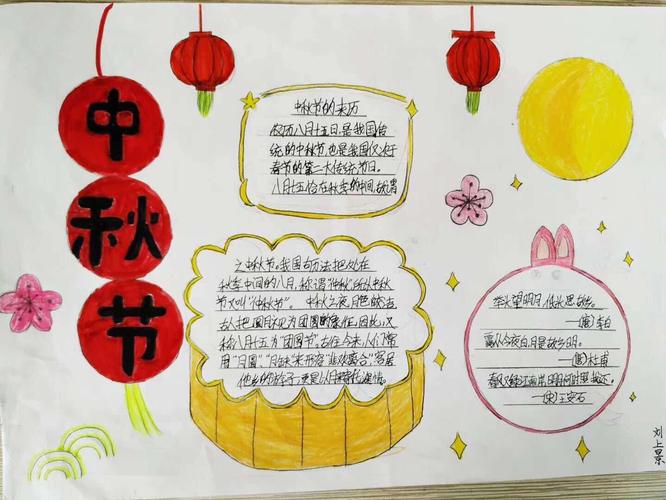 中
秋
节
中秋节的来历
农历八月十五日,是我国传
统的中秋节,也是我国仅次于
春节的第二大传统节日。
八月十五恰在秋季的中间,故谓
之中秋节。我国古历法把处在
秋季中间的八月,称谓"仲秋"所以中秋
节又叫"仲秋节"。中秋之夜月色皎洁
古人把圆月视为团圆的象征,因此,又
称八月十五为"团圆节"。古往今来,人们常
用"月圆"、"月缺"来形容"悲欢离合"客居
他乡的游子,更是以月
举头望明月,低头思故
——(唐)李白
露从今夜白,月是故乡明。
——(唐)杜甫
春风又绿江南岸,明月何时照我还。
——(宋)王安石
刘上景